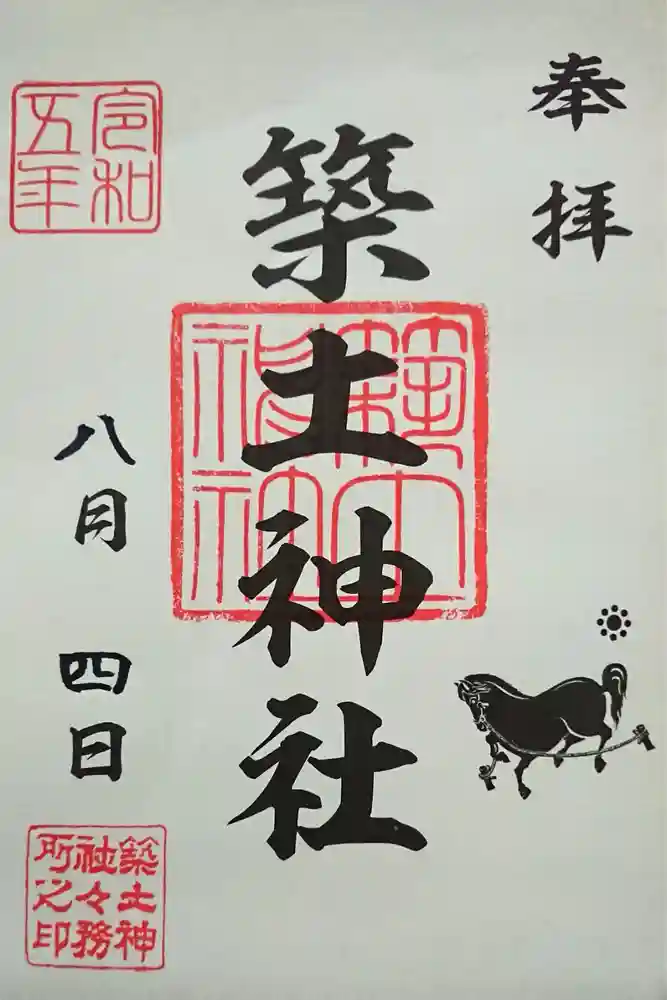 奉拝
築土神社
築土神社
令和五年
八月四日
築土神社々務所之印